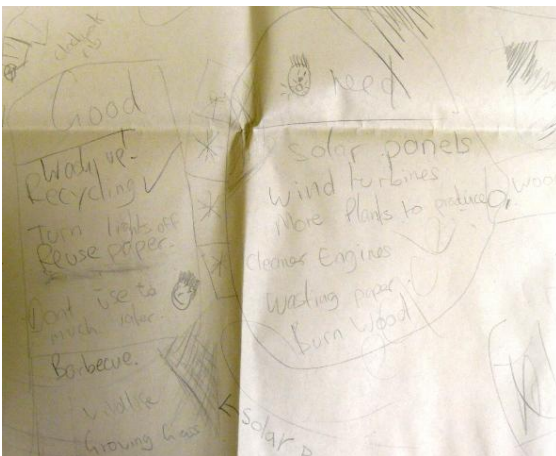 Good
Wash up.
Recycling
Turn lights off
Reuse paper.
Dont use to
much water.
Barbecue.
Wildlife
Growing Grass
Need
Solar panels
Wind turbines
More Plants to produce O
Cleaner Engines
Wasting paper.
Burn Wood
Wood
Solar